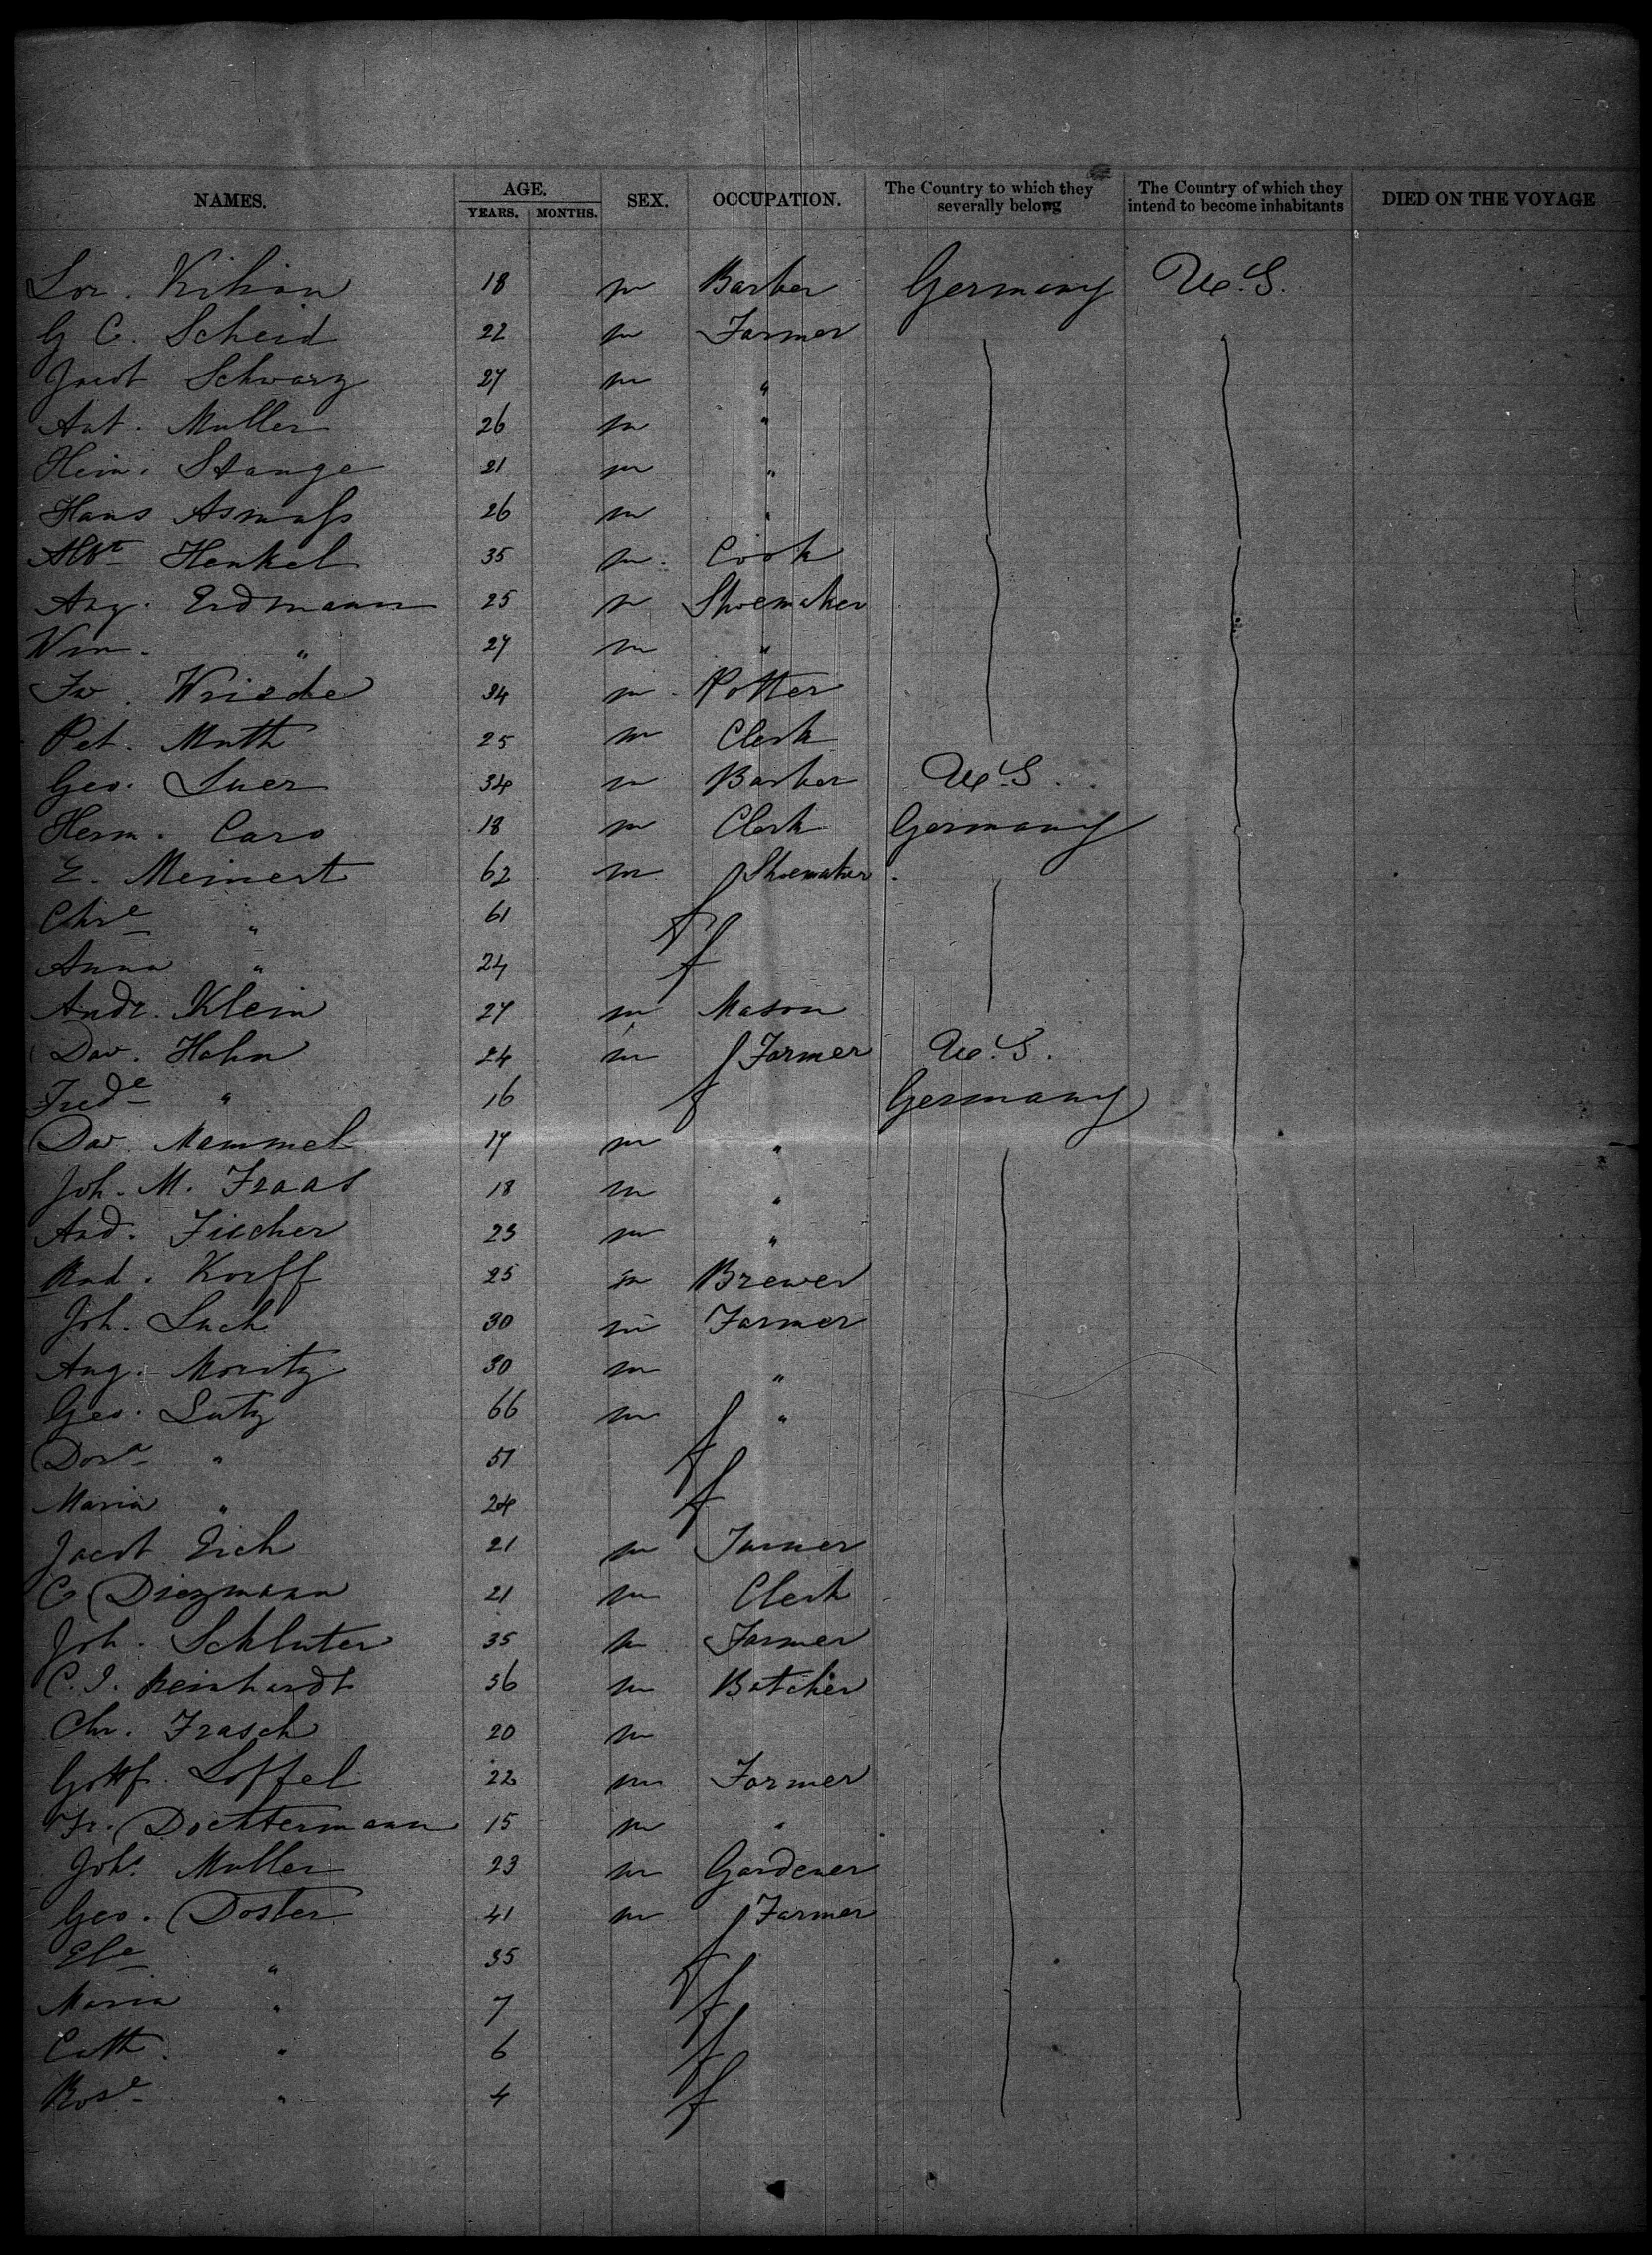 NAMES. AGE. SEX. OCCUPATION. The Country to which they severally belong The Country of which they intend to become inhabitants DIED ON THE VOYAGE
YEARS. MONTHS.
Lor. Kilian 18 m Barber Germany U.S.
G C. Scheid 22 m Farmer
Jacob Schwarz 27 m "
Ant. Muller 26 m "
Hein. Stange 21 m "
Hans Asmuss 26 m "
Albt Henkel 35 m. Cook
Aug. Erdmann 25 m Shoemaker
Wm. " 27 m "
Fr. Wriede 34 m Potter
Pet. Muth 25 m Clerk
Geo. Luer 34 m Barber U.S.
Herm. Caro 18 m Clerk Germany
E. Meinert 62 m Shoemaker
Chre " 61 f
Anna " 24 f
Andr. Klein 27 m Mason
Dav. Hahn 24 m Farmer U.S.
Frede " 16 f Germany
Dav. Memmel 17 m "
Joh. M. Fraas 18 m "
And. Fischer 23 m "
Rud. Korff 25 m Brewer
Joh. Luck 30 m Farmer
Aug. Moritz 30 m "
Geo. Lutz 66 m "
Dora " 51 f
Maria " 24 f
Jacob Eich 21 m Turner
C Diezmann 21 m Clerk
Joh. Schluter 35 m Farmer
C. I. Reinhardt 36 m Butcher
Chr. Frasch 20 m
Gottf. Loffel 22 m Farmer
Fr. Dochtermann 15 m "
Johs Muller 23 m Gardener
Geo. Doster 41 m Farmer
Ele " 35 f
Maria " 7 f
Cath. " 6 f
Rose " 4 f